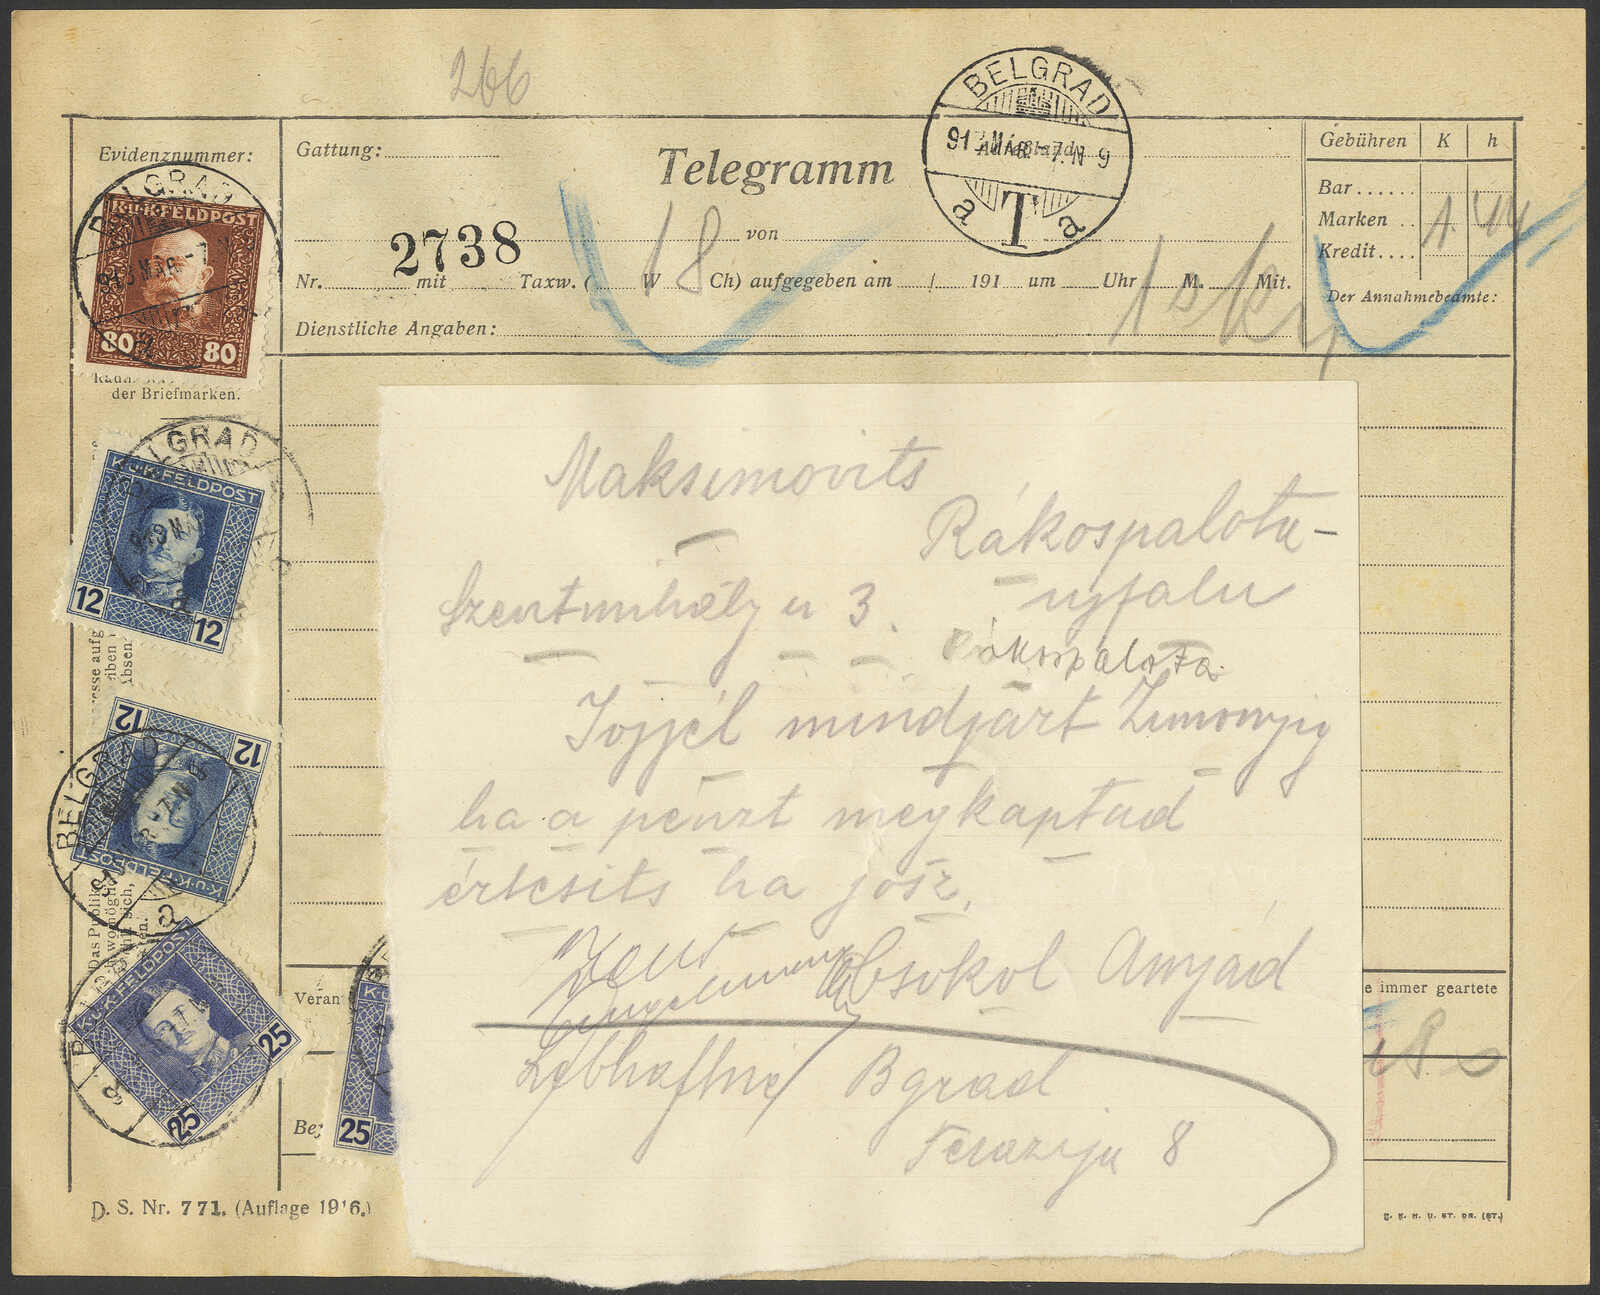 266
BELGRAD
913 MÁR -7. N 9
a T a
Evidenznummer:
Gattung:
Telegramm
von
2738
Nr. mit Taxw. ( W 18 Ch) aufgegeben am / 191 um Uhr M. Mit.
Dienstliche Angaben:
Gebühren K h
Bar
Marken 1 44
Kredit
Der Annahmebeamte:
BELGRAD
K.u.K.FELDPOST
80 80
der Briefmarken.
BELGRAD
K.u.K.FELDPOST
12 12
12 12
BELGRAD
K.u.K.FELDPOST
Das Publik
K.u.K.FELDPOST
25 25
25
Maksimovits
Rákospalota-
Szentmihály u 3. ujfalu
Rákospalota
Jöjjél mindjárt Zimonyig
ha a pénzt megkaptad
értesits ha jösz.
Csokol Anyád
Lebhaftne Bgrad
Terazija 8
Veran
e immer geartete
Be
D. S. Nr. 771. (Auflage 1916.)